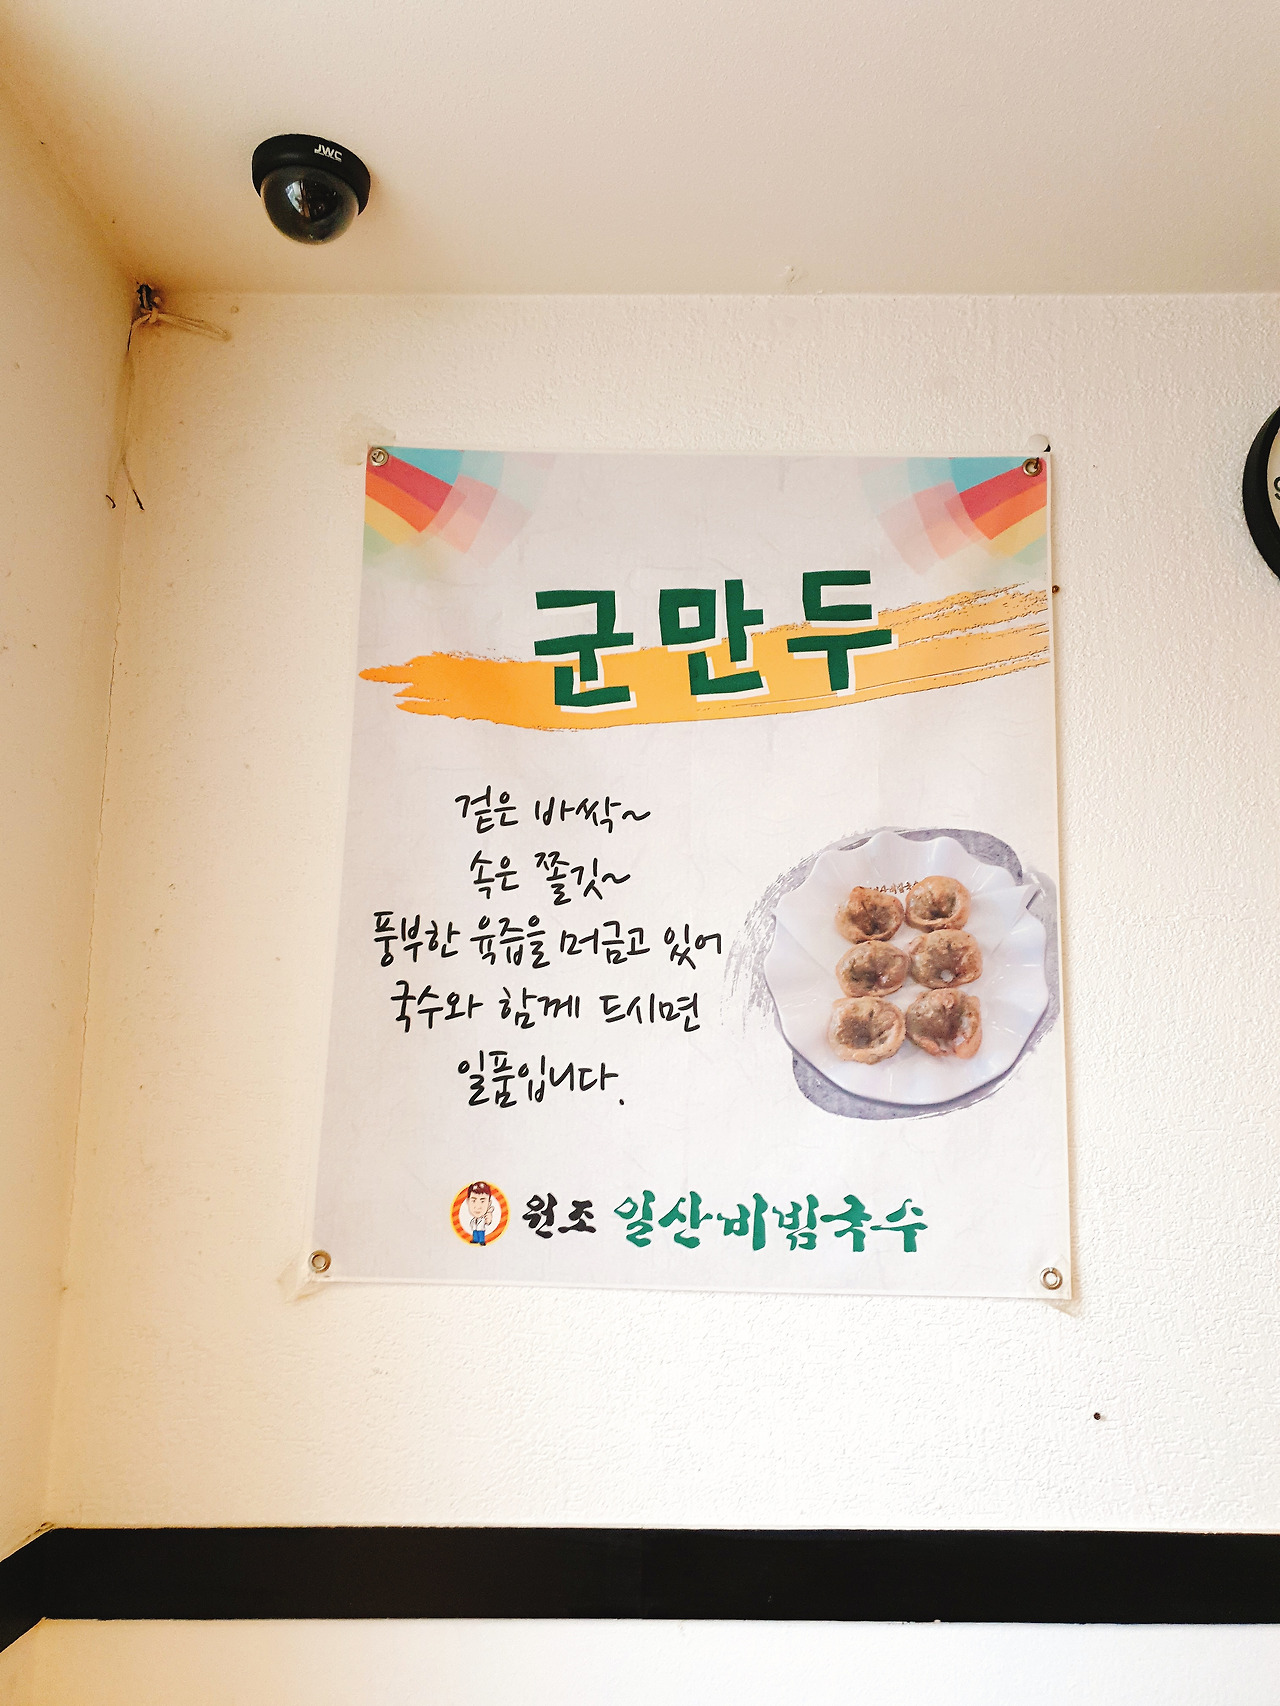 JWC
군만두
겉은 바싹~
속은 쫄깃~
풍부한 육즙을 머금고 있어
국수와 함께 드시면
일품입니다.
원조 일산비빔국수
9